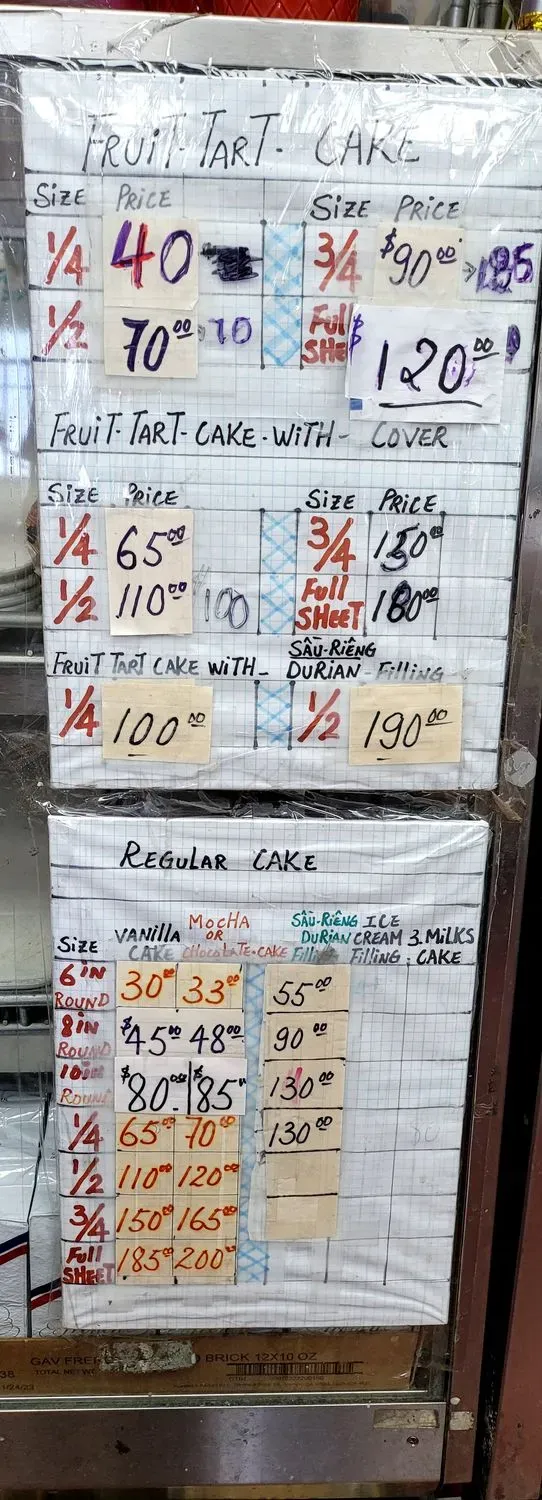 FRUiT-TART- CAKE
SiZE PRiCE SiZE PRiCE
1/4 40 3/4 $90.00
1/2 70.00 70 Full SHEET $120.00
FRUiT-TART-CAKE-WiTH- COVER
SiZE PRiCE SiZE PRiCE
1/4 65.00 3/4 150.00
1/2 110.00 100 Full SHEET 180.00
SẦU-RiÊNG
FRUiT TART CAKE WiTH- DURiAN-Filling
1/4 100.00 1/2 190.00
REGULAR CAKE
SiZE VANillA CAKE MOCHA OR CHOCOLATE-CAKE SẦU-RiÊNG DURiAN Filling ICE CREAM Filling 3.MilKS CAKE
6 iN ROUND 30.00 33.00 55.00
8 iN ROUND $45.00 48.00 90.00
10 iN ROUND $80.00 $85 130.00
1/4 65.00 70.00 130.00
1/2 110.00 120.00
3/4 150.00 165.00
Full SHEET 185.00 200.00
BRICK 12X10 OZ
TOTAL NET